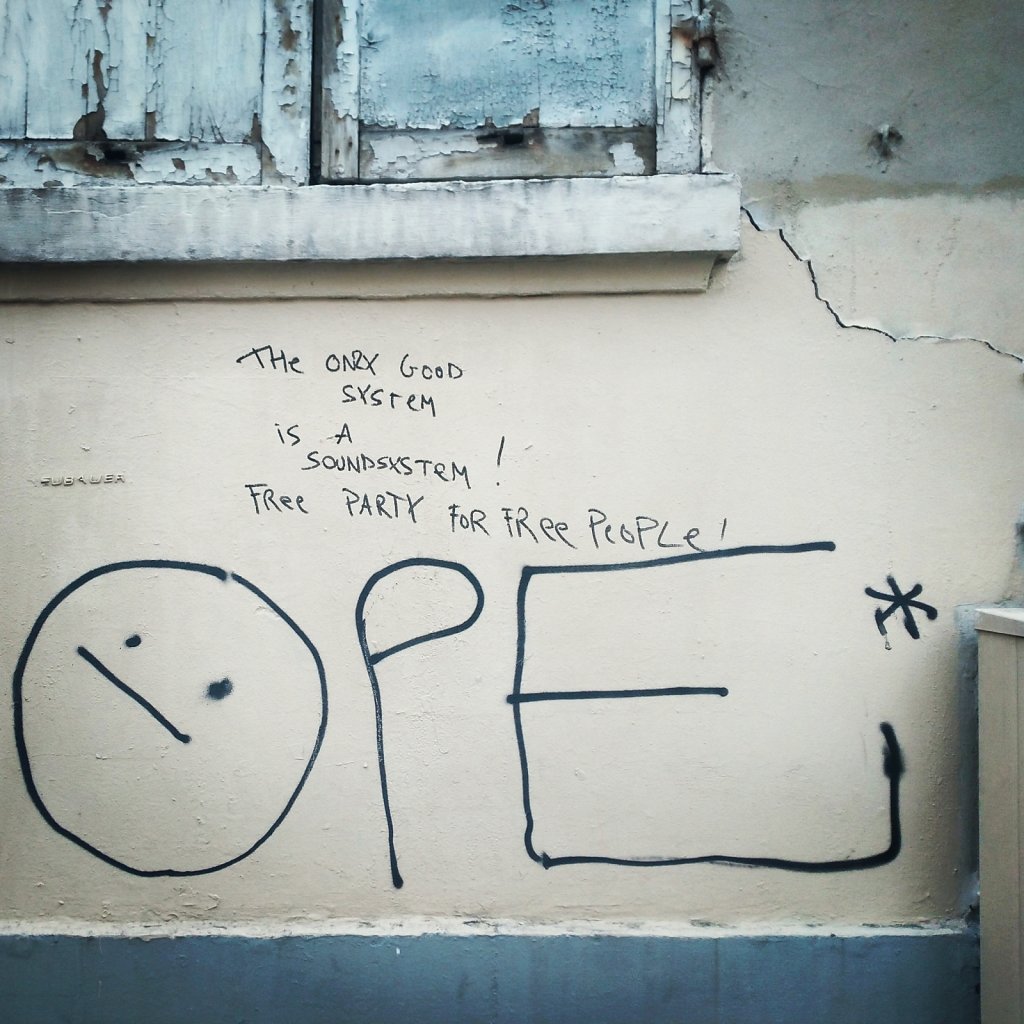 THe ONLY GOOD
SYSTeM
is A
SOUNDSYSTeM !
FRee PARTY FOR FRee PeoPLe!
OPE*